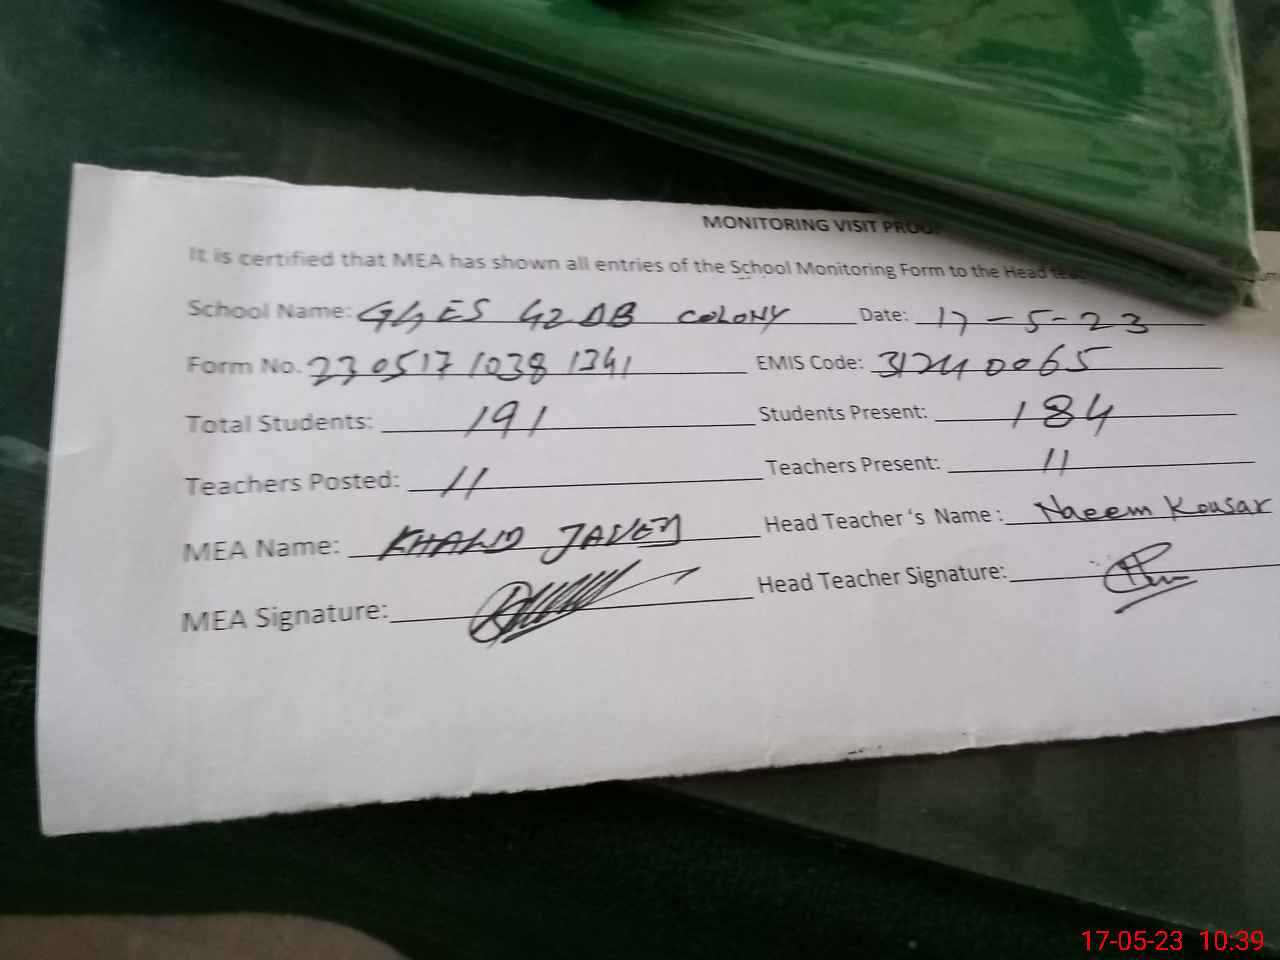 MONITORING VISIT PROO
It is certified that MEA has shown all entries of the School Monitoring Form to the Head
School Name: GGES 42 DB COLONY Date: 17-5-23
Form No. 230517 1038 1341 EMIS Code: 31240065
Total Students: 191 Students Present: 184
Teachers Posted: 11 Teachers Present: 11
MEA Name: KHALID JAVED Head Teacher's Name: Naeem Kousar
MEA Signature: Head Teacher Signature:
17-05-23 10:39